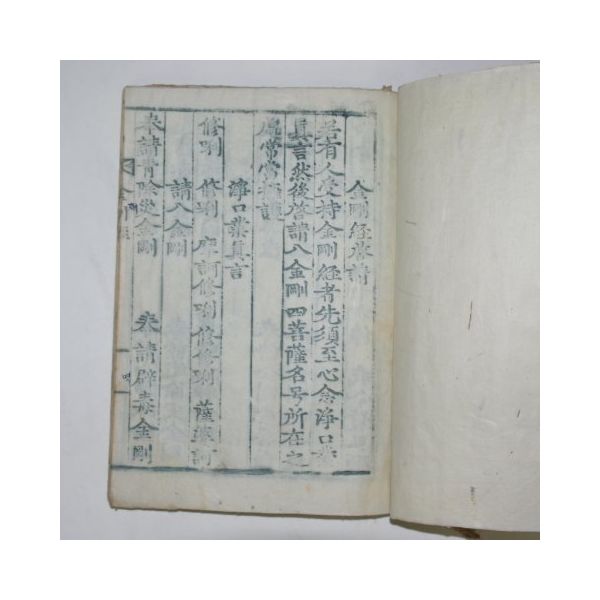 金剛経啓請
若有人受持金剛経者先須至心念淨口業
真言然後啓請八金剛四菩薩名号所在之
處常當擁護
淨口業真言
修唎 修唎 摩訶修唎 修修唎 薩婆訶
請八金剛
奉請青除災金剛 奉請辟毒金剛